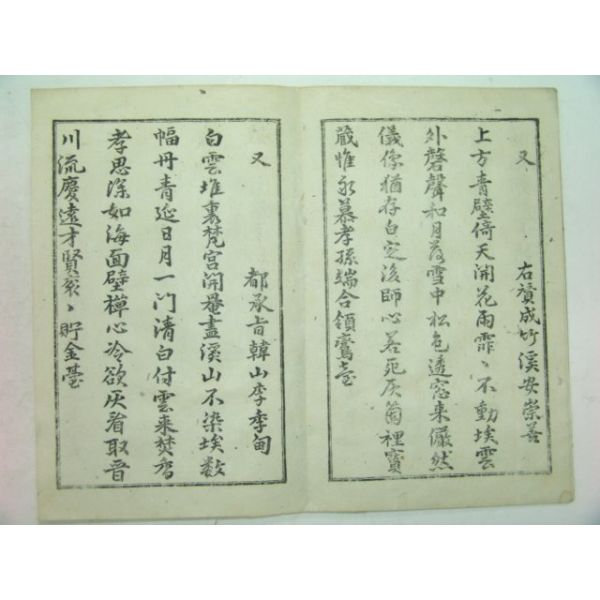 又
右贊成竹溪安崇善
上方青壁倚天開花雨霏〻不動埃雲
外磬聲和月落雪中松色透窓来儼然
儀像猶存白足後師心若死灰篋裡寶
蔵惟永慕孝孫端合領鸞臺
又
都承旨韓山李季甸
白雲堆裏梵宮開罨畫溪山不染埃数
幅丹青延日月一门清白付雲来焚香
孝思深如海面壁禪心冷欲灰看取晋
川流慶遠才賢袞〻貯金臺